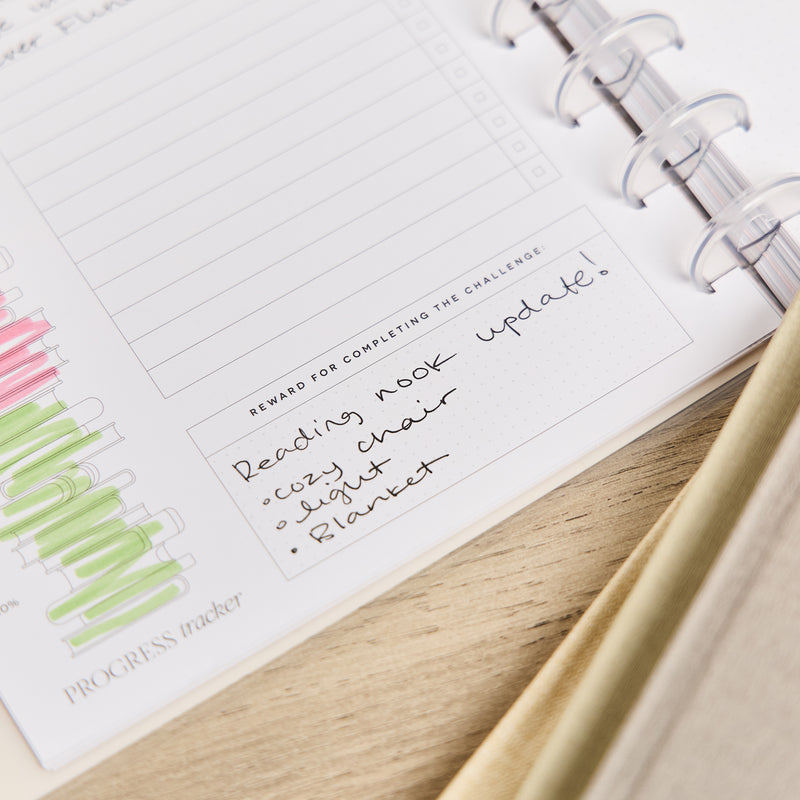 REWARD FOR COMPLETING THE CHALLENGE:
Reading nook update!
• cozy chair
• light
• Blanket
PROGRESS tracker